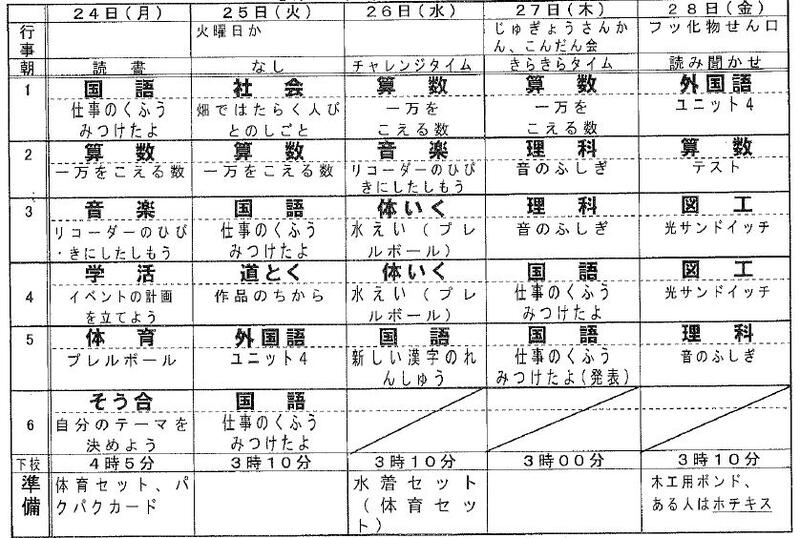 24日(月) 25日(火) 26日(水) 27日(木) 28日(金)
行事 火曜日か じゅぎょうさんかん、こんだん会 フッ化物せん口
朝 読書 なし チャレンジタイム きらきらタイム 読み聞かせ
1 国語 社会 算数 算数 外国語
仕事のくふう 畑ではたらく人び 一万を 一万を ユニット4
みつけたよ とのしごと こえる数 こえる数
2 算数 算数 音楽 理科 算数
一万をこえる数 一万をこえる数 リコーダーのひび 音のふしぎ テスト
きにしたしもう
3 音楽 国語 体いく 理科 図工
リコーダーのひび 仕事のくふう 水えい(プレ 音のふしぎ 光サンドイッチ
・きにしたしもう みつけたよ ルボール)
4 学活 道とく 体いく 国語 図工
イベントの計画 作品のちから 水えい(プレ 仕事のくふう 光サンドイッチ
を立てよう ルボール) みつけたよ
5 体育 外国語 国語 国語 理科
プレルボール ユニット4 新しい漢字のれ 仕事のくふう 音のふしぎ
んしゅう みつけたよ(発表)
6 そう合 国語
自分のテーマを 仕事のくふう
決めよう みつけたよ
下校 4時5分 3時10分 3時10分 3時00分 3時10分
準備 体育セット、パ 水着セット 木工用ボンド、
クパクカード (体育セッ ある人はホチキス
ト)